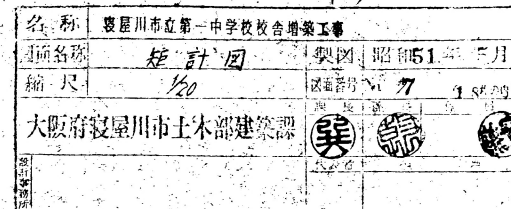 名称 寝屋川市立第一中学校校舎増築工事
図面名称 矩計図 製図 昭和51年 5月
縮尺 1/20 図面番号
大阪府寝屋川市土木部建築課
設計事務所